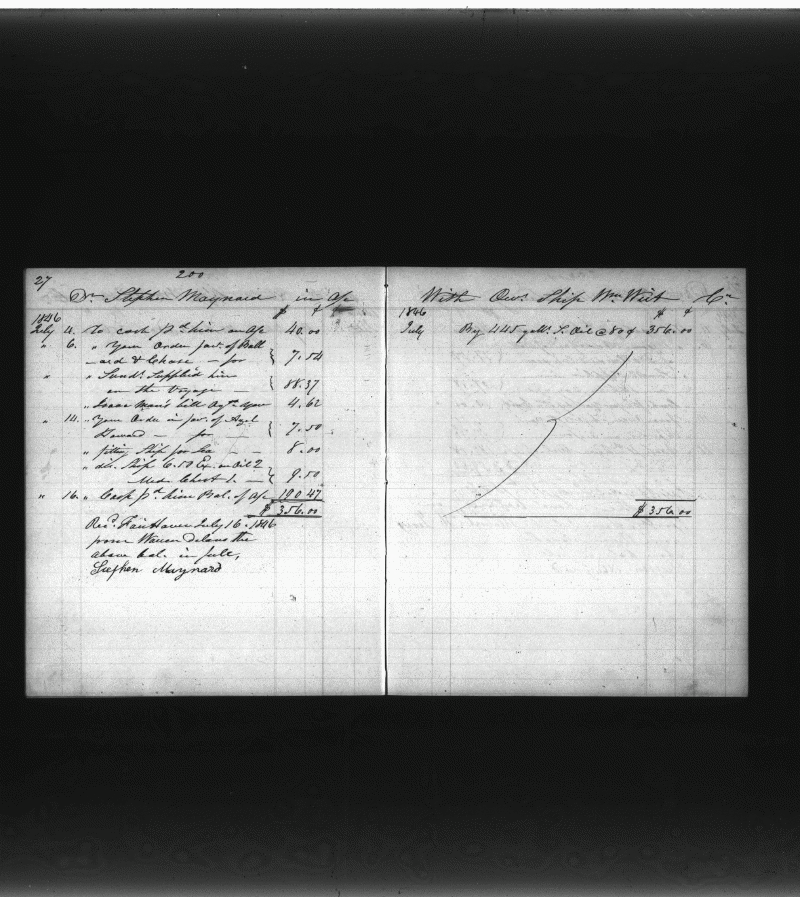 27
200
Dr Stephen Maynard in a/c
$ ¢
1846
July 4. To cash pd him on a/c 40.00
" 6. " Your Order fav. of Ball
ard & Chase - for 7.54
" " Sunds Supplied him
on the Voyage - 88.37
" Isaac Man's bill agst you 4.62
" 14. " Your Order in fav. of
Howard - for - 7.50
" fitting Ship for Sea - - 8.00
" do. Ship 6.50 Ex. on Oil 2
Med. Chest 1. - 9.50
" 16. " Cash pd him Bal. of a/c 190.47
$ 356.00
Recd. Fair Haven July 16. 1846
from Warren Delano the
above bal. in full,
Stephen Maynard
With Ows Ship Wm Wirt Cr
1846 $ ¢
July By 445 galls. S. Oil @ 80 ¢ 356.00
$ 356.00